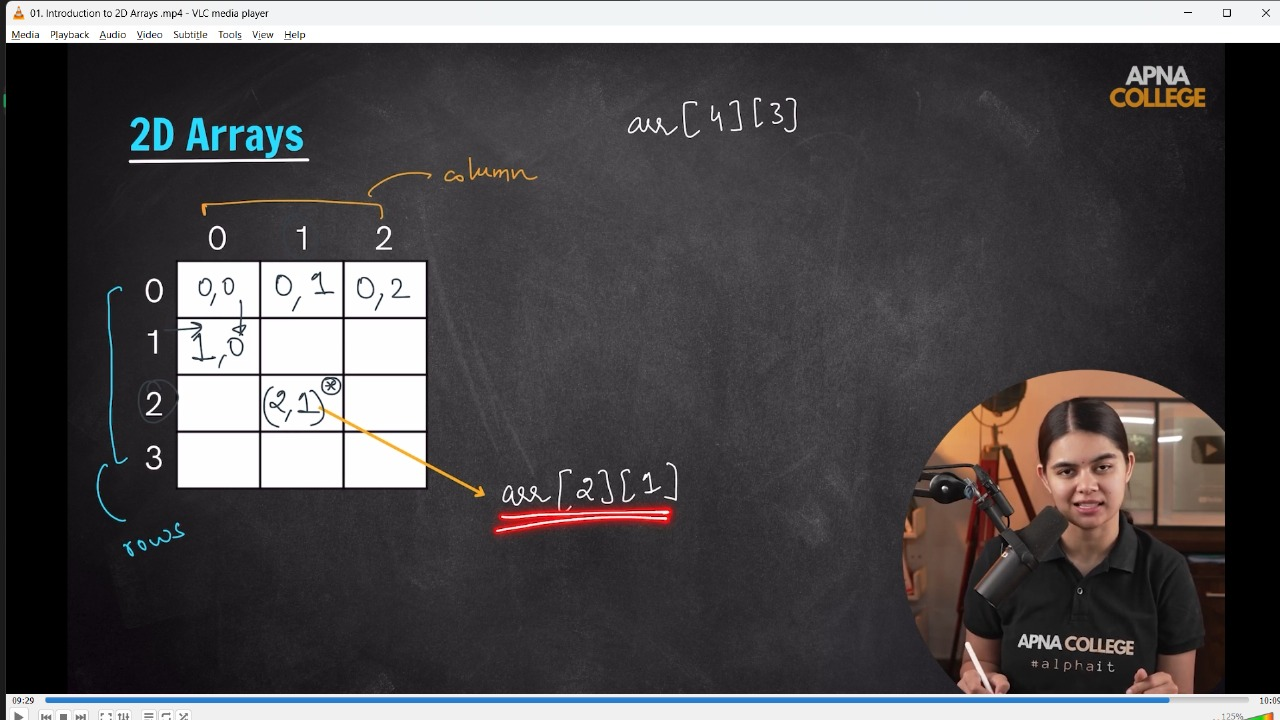 01. Introduction to 2D Arrays .mp4 - VLC media player
Media Playback Audio Video Subtitle Tools View Help
APNA
COLLEGE
arr[4][3]
2D Arrays
column
0 1 2
0 0,0 0,1 0,2
1 1,0
2 (2,1)*
3
arr[2][1]
rows
APNA COLLEGE
#alphait
09:29 10:09
125%